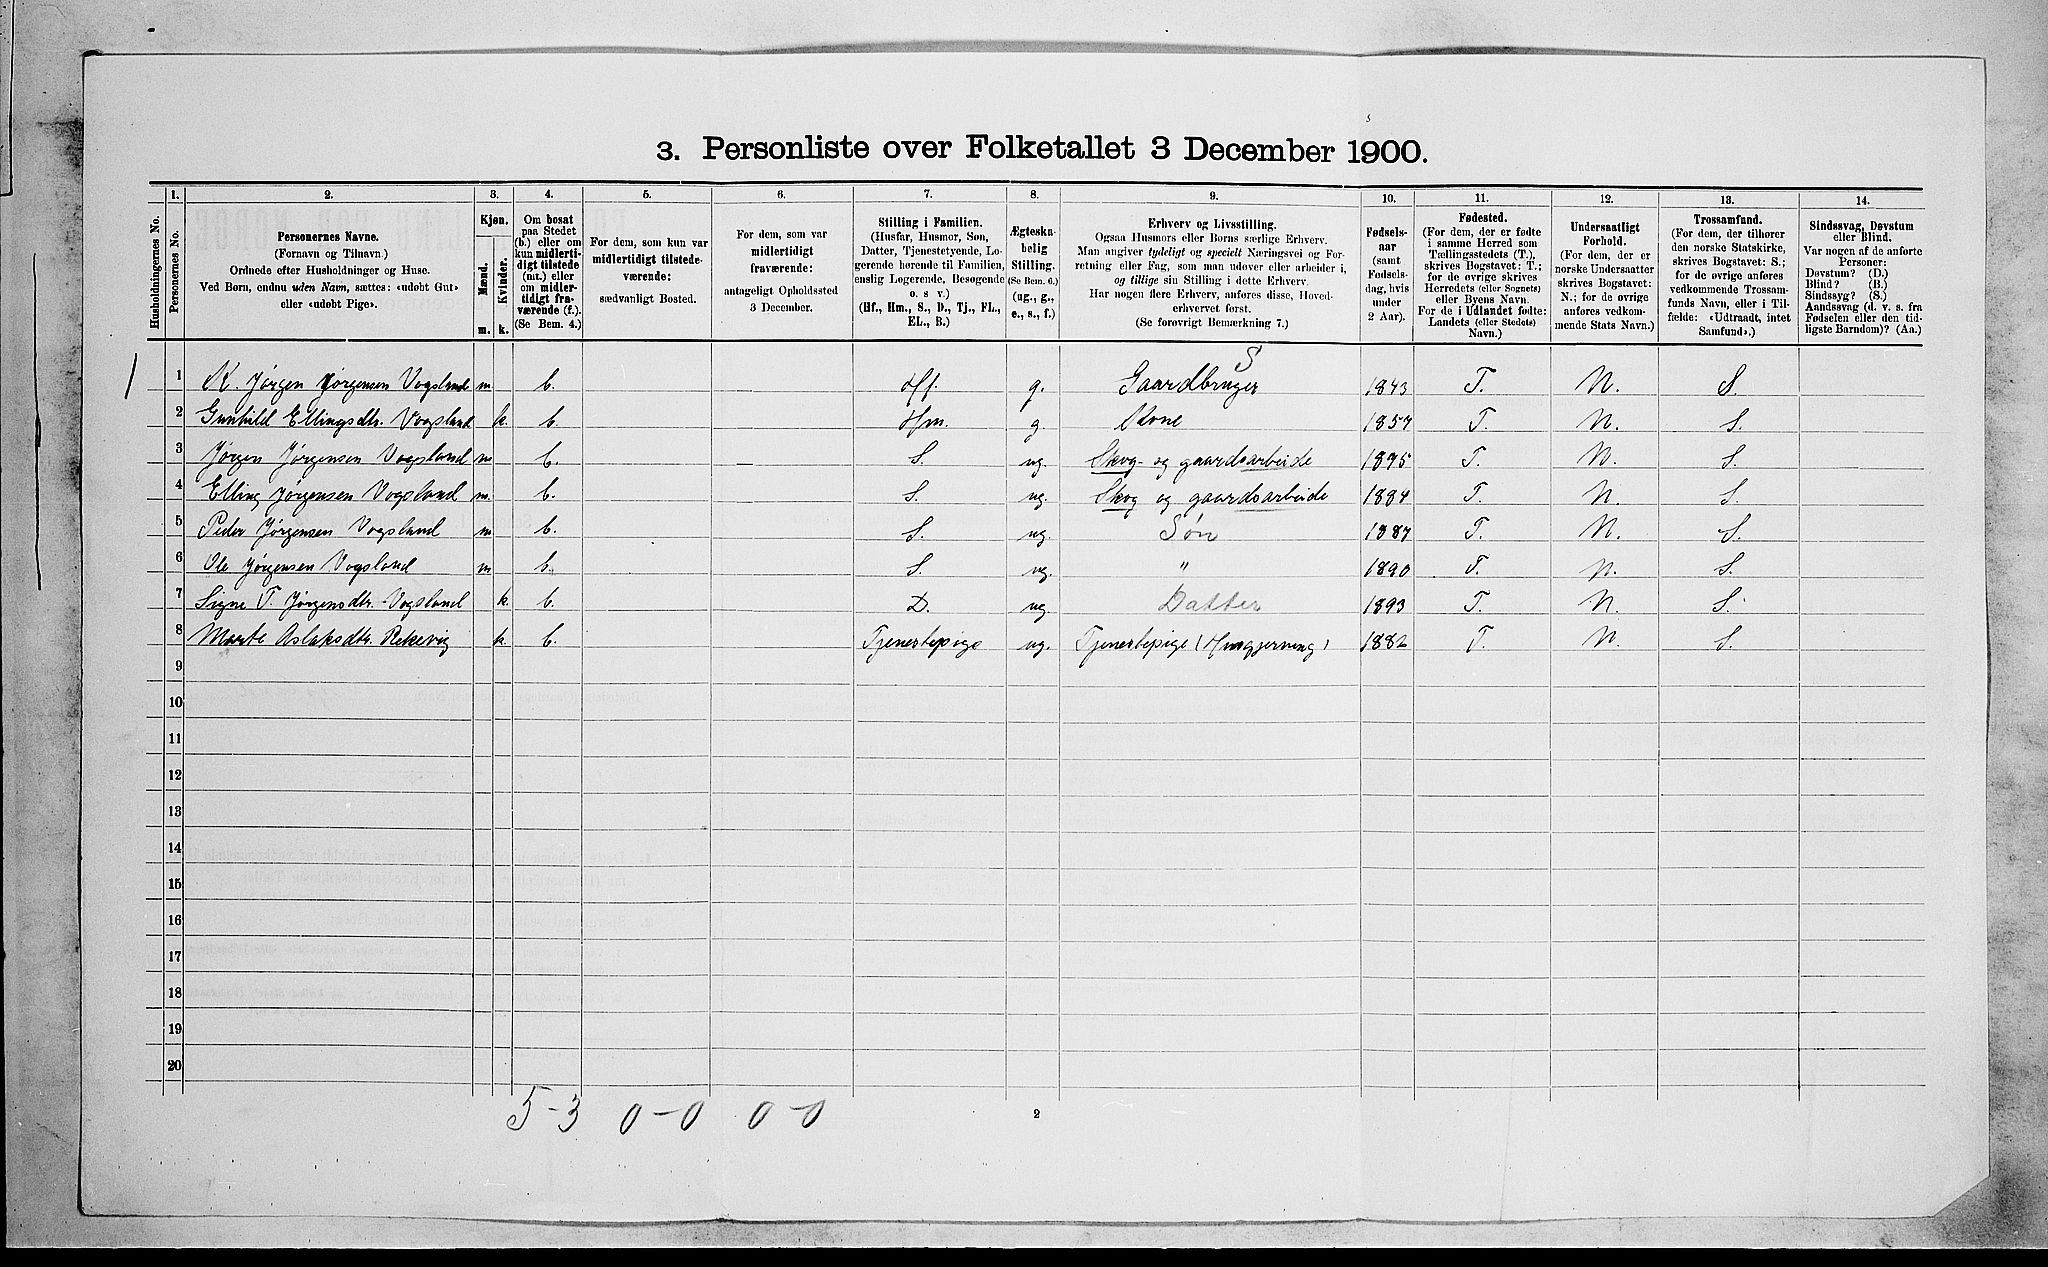 3. Personliste over Folketallet 3 December 1900.
1. 2. 3. 4. 5. 6. 7. 8. 9. 10. 11. 12. 13. 14.
Husholdningernes No.
Personernes No.
Personernes Navne.
(Fornavn og Tilnavn.)
Ordnede efter Husholdninger og Huse.
Ved Børn, endnu uden Navn, sættes: «udøbt Gut»
eller «udøbt Pige».
Kjøn.
Mænd.
Kvinder.
m. k.
Om bosat
paa Stedet
(b.) eller om
kun midlerti-
digt tilstede
(mt.) eller
om midler-
tidigt fra-
værende (f.).
(Se Bem. 4.)
For dem, som kun var
midlertidigt tilstede-
værende:
sædvanligt Bosted.
For dem, som var
midlertidigt
fraværende:
antageligt Opholdssted
3 December.
Stilling i Familien.
(Husfar, Husmor, Søn,
Datter, Tjenestetyende, Lo-
gerende hørende til Familien,
enslig Logerende, Besøgende
o. s. v.)
(Hf., Hm., S., D., Tj., FL.,
EL., B.)
Ægteska-
belig
Stilling.
(Se Bem. 6.)
(ug., g.,
e., s., f.)
Erhverv og Livsstilling.
Ogsaa Husmors eller Børns særlige Erhverv.
Man angiver tydeligt og specielt Næringsvei og For-
retning eller Fag, som man udøver eller arbeider i,
og tillige sin Stilling i dette Erhverv.
Har nogen flere Erhverv, anføres disse, Hoved-
erhvervet først.
(Se forøvrigt Bemærkning 7.)
Fødsels-
aar
(samt
Fødsels-
dag, hvis
under
2 Aar).
Fødested.
(For dem, der er fødte
i samme Herred som
Tællingsstedets (T.),
skrives Bogstavet: T.;
for de øvrige skrives
Herredets (eller Sognets)
eller Byens Navn.
For de i Udlandet fødte:
Landets (eller Stedets)
Navn.)
Undersaatligt
Forhold.
(For dem, der er
norske Undersaatter
skrives Bogstavet:
N.; for de øvrige
anføres vedkom-
mende Stats Navn.)
Trossamfund.
(For dem, der tilhører
den norske Statskirke,
skrives Bogstavet: S.;
for de øvrige anføres
vedkommende Trossam-
funds Navn, eller i Til-
fælde: «Udtraadt, intet
Samfund».)
Sindssvag, Døvstum
eller Blind.
Var nogen af de anførte
Personer:
Døvstum? (D.)
Blind? (B.)
Sindssyg? (S.)
Aandssvag (d. v. s. fra
Fødselen eller den tid-
ligste Barndom)? (Aa.)
S
1 K. Jørgen Jørgensen Vogsland m b. Hf. g. Gaardbruger 1843 T. N. S.
2 Gunhild Ellingsdtr. Vogsland k. b. Hm. g. Kone 1857 T. N. S.
3 Jørgen Jørgensen Vogsland m b. S. ug. Skog- og gaardsarbeide 1875 T. N. S.
4 Elling Jørgensen Vogsland m. b. S. ug. Skog og gaardsarbeide 1884 T. N. S.
5 Peder Jørgensen Vogsland m b. S. ug. Søn 1887 T. N. S.
6 Ole Jørgensen Vogsland m b. S. ug. " 1890 T. N. S.
7 Signe T. Jørgensdtr. Vogsland k. b. D. ug. Datter 1893 T. N. S.
8 Marte Aslaksdtr. Rekevig k. b. Tjenestepige ug. Tjenestepige (Husgjerning) 1882 T. N. S.
9
10
11
12
13
14
15
16
17
18
19
20
5-3 0-0 0-0
2